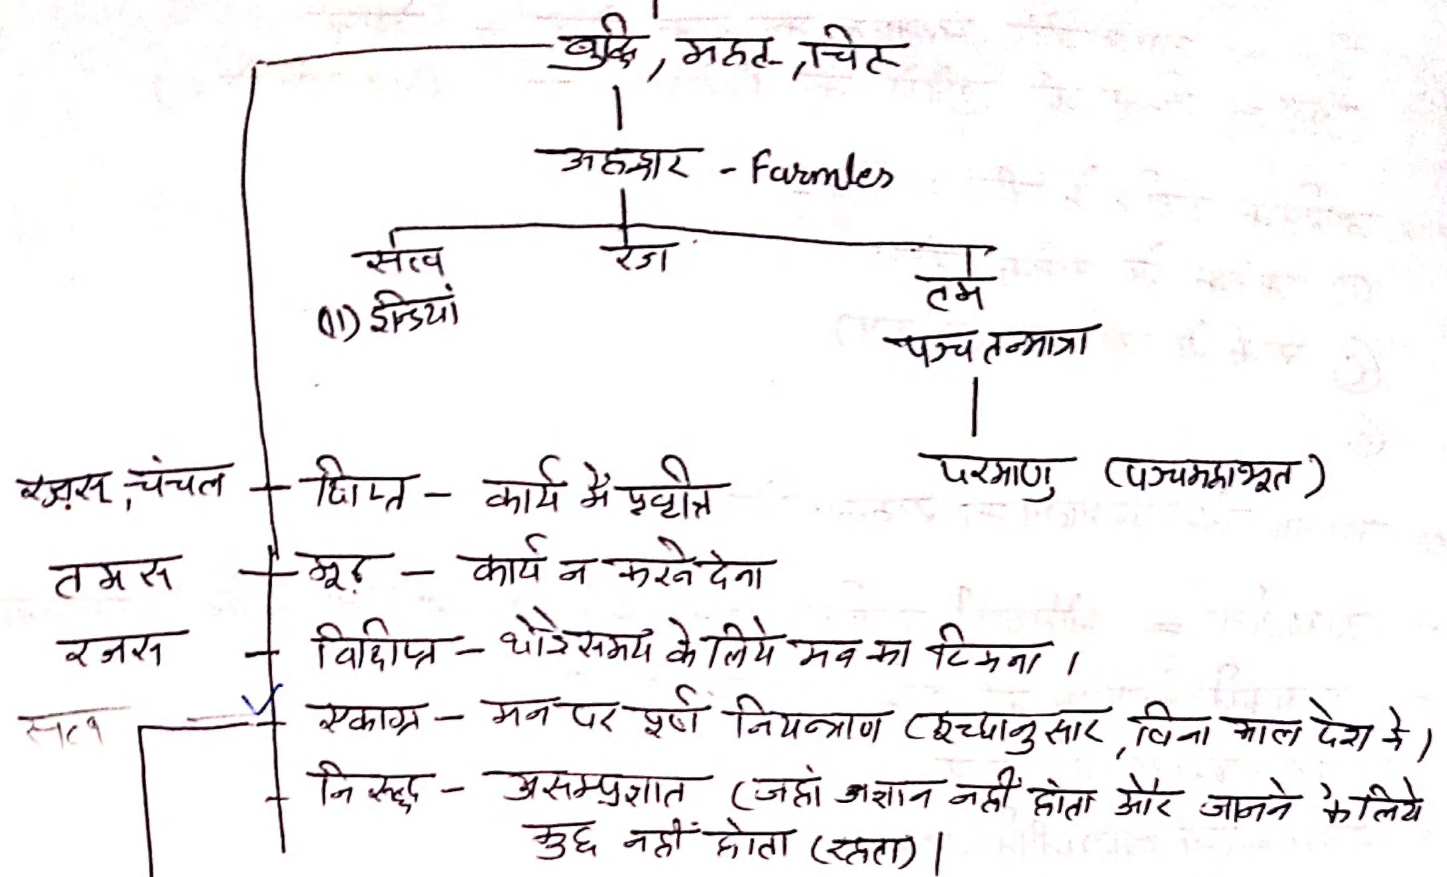 बुद्धि, महत, चित्त
अहङ्कार - Farmles
सत्व रज तम
(11) इन्द्रियां
पञ्च तन्मात्रा
परमाणु (पञ्चमहाभूत)
रजस, चंचल - क्षिप्त - कार्य में प्रवृत्ति
तमस - मूढ़ - कार्य न करने देना
रजस - विक्षिप्त - थोरे समय के लिये मन का टिकना ।
सत्व एकाग्र - मन पर पूर्ण नियन्त्राण (इच्छानुसार, विना काल देश के)
निरुद्ध - असम्प्रज्ञात (जहां अज्ञान नहीं होता और जानने के लिये
कुछ नहीं होता (रहता) ।